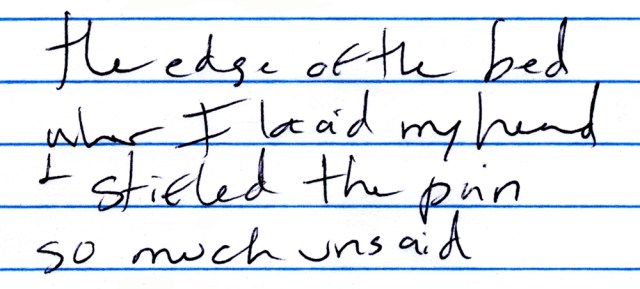 the edge of the bed
where I laid my head
+ stifled the pain
so much unsaid